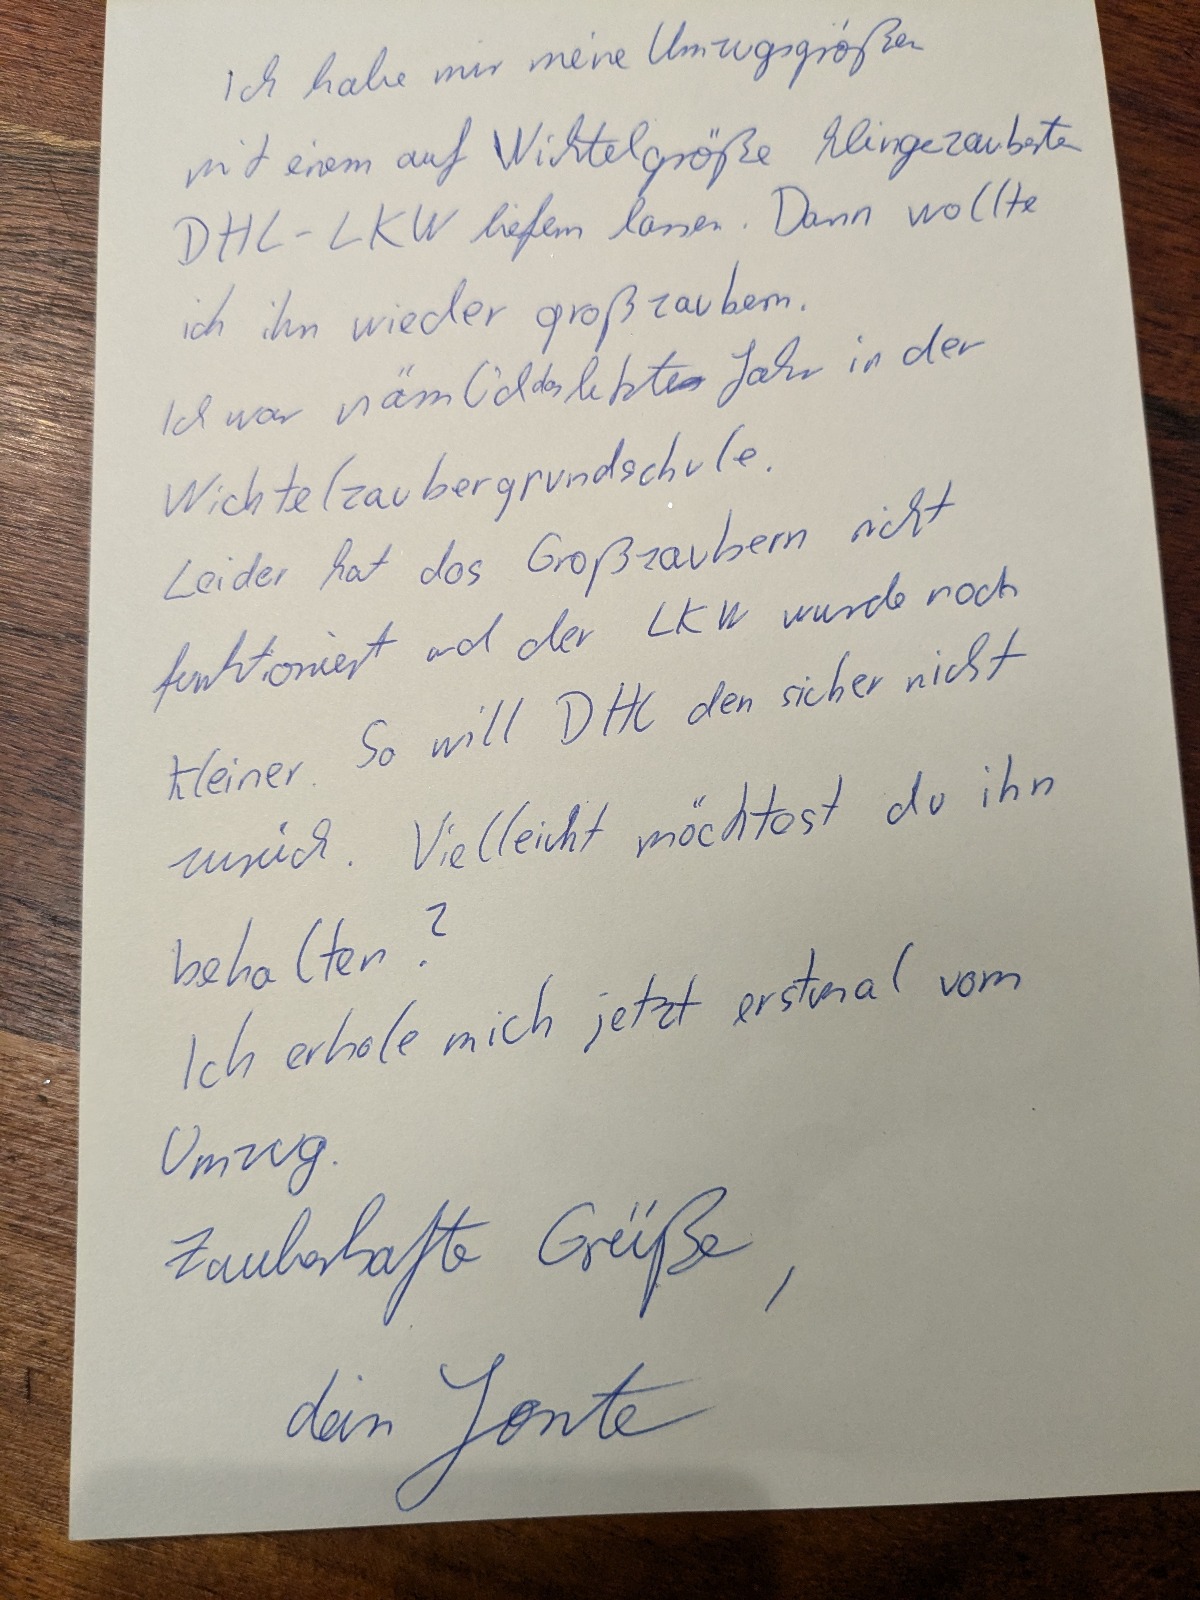 Ich habe mir meine Umzugsgrößen
mit einem auf Wichtelgröße kleingezauberten
DHL-LKW liefern lassen. Dann wollte
ich ihn wieder großzaubern.
Ich war nämlich das letzte Jahr in der
Wichtelzaubergrundschule.
Leider hat das Großzaubern nicht
funktioniert und der LKW wurde noch
kleiner. So will DHL den sicher nicht
zurück. Vielleicht möchtest du ihn
behalten?
Ich erhole mich jetzt erstmal vom
Umzug.
Zauberhafte Grüße,
dein Jonte